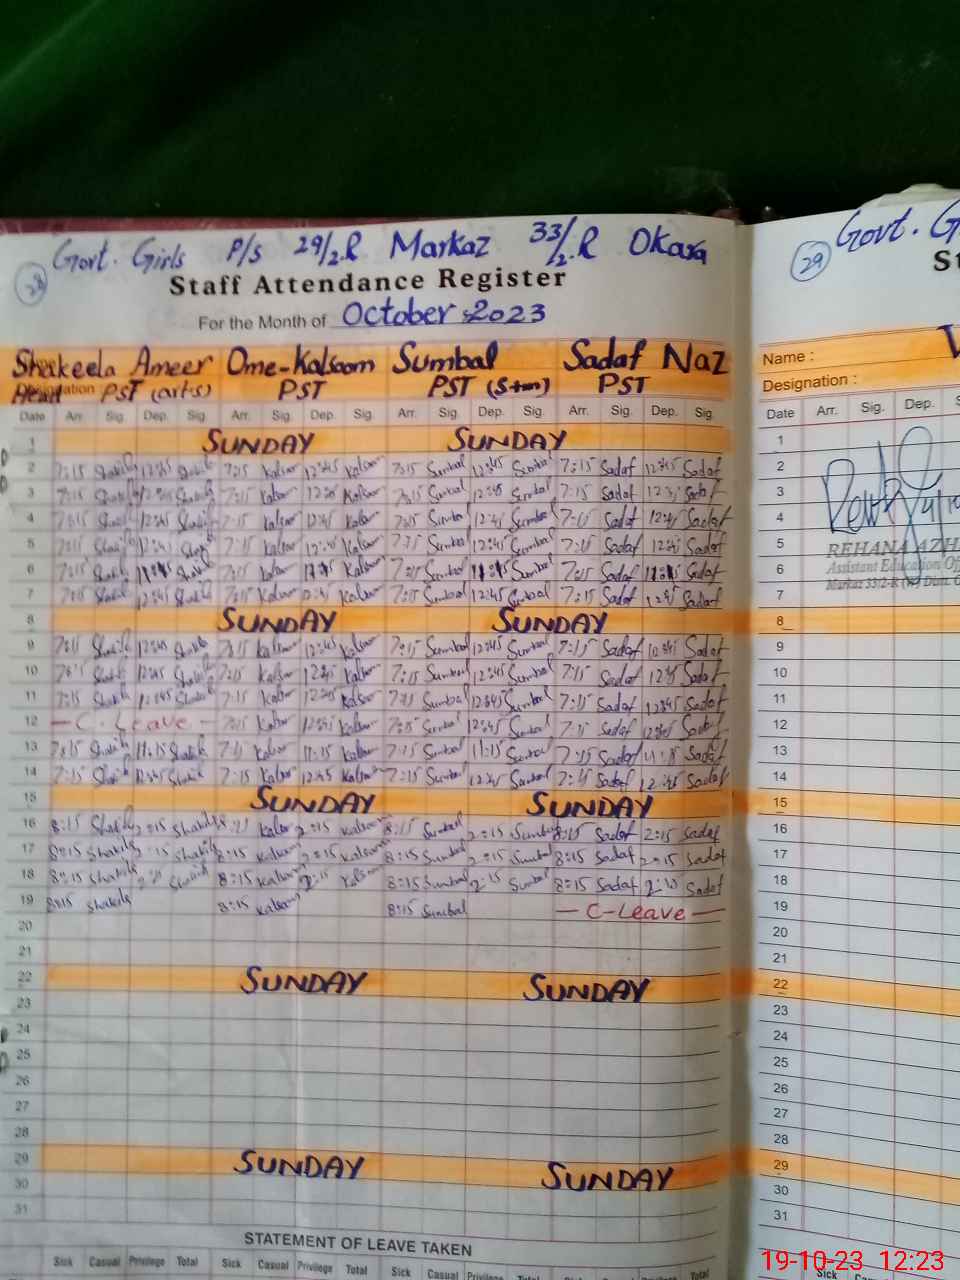 Govt. Girls P/S 29/2.R Markaz 33/2.R Okara
28
Staff Attendance Register
For the Month of October 2023
Shakeela Ameer Ome-Kalsoom Sumbal Sadaf Naz
Head PST (arts) PST PST PST
Date Arr. Sig. Dep. Sig. Arr. Sig. Dep. Sig. Arr. Sig. Dep. Sig. Arr. Sig. Dep. Sig.
1 SUNDAY SUNDAY
2 7:15 12:45 7:15 Kalsoom 12:45 Kalsoom 7:15 Sumbal 12:45 Sumbal 7:15 Sadaf 12:45 Sadaf
3 7:15 7:15 Kalsoom Kalsoom 7:15 Sumbal 12:45 Sumbal 7:15 Sadaf Sadaf
4 7:15 12:45 7:15 Kalsoom 12:45 Kalsoom 7:15 Sumbal 12:45 Sumbal 7:15 Sadaf 12:45 Sadaf
5 7:15 12:45 7:15 Kalsoom 12:45 Kalsoom 7:15 Sumbal 12:45 Sumbal 7:15 Sadaf 12:45 Sadaf
6 7:15 7:15 Kalsoom Kalsoom 7:15 Sumbal Sumbal 7:15 Sadaf Sadaf
7 7:15 12:45 7:15 Kalsoom 12:45 Kalsoom 7:15 Sumbal 12:45 Sumbal 7:15 Sadaf 12:45 Sadaf
8 SUNDAY SUNDAY
9 7:15 12:45 7:15 Kalsoom 12:45 Kalsoom 7:15 Sumbal 12:45 Sumbal 7:15 Sadaf 12:45 Sadaf
10 7:15 12:45 7:15 Kalsoom 12:45 Kalsoom 7:15 Sumbal 12:45 Sumbal 7:15 Sadaf 12:45 Sadaf
11 7:15 12:45 7:15 Kalsoom 12:45 Kalsoom 7:15 Sumbal 12:45 Sumbal 7:15 Sadaf 12:45 Sadaf
12 — C-Leave — 7:15 Kalsoom 12:45 Kalsoom 7:15 Sumbal 12:45 Sumbal 7:15 Sadaf 12:45 Sadaf
13 7:15 11:15 7:15 Kalsoom 11:15 Kalsoom 7:15 Sumbal 11:15 Sumbal 7:15 Sadaf 11:15 Sadaf
14 7:15 12:45 7:15 Kalsoom 12:45 Kalsoom 7:15 Sumbal 12:45 Sumbal 7:15 Sadaf 12:45 Sadaf
15 SUNDAY SUNDAY
16 8:15 Shakila 2:15 Shakila 8:15 Kalsoom 2:15 Kalsoom 8:15 Sumbal 2:15 Sumbal 8:15 Sadaf 2:15 Sadaf
17 8:15 Shakila 2:15 Shakila 8:15 Kalsoom 2:15 Kalsoom 8:15 Sumbal 2:15 Sumbal 8:15 Sadaf 2:15 Sadaf
18 8:15 Shakila 2:15 Shakila 8:15 Kalsoom 2:15 Kalsoom 8:15 Sumbal 2:15 Sumbal 8:15 Sadaf 2:15 Sadaf
19 8:15 Shakila 8:15 Kalsoom 8:15 Sumbal — C-Leave —
20
21
22 SUNDAY SUNDAY
23
24
25
26
27
28
29 SUNDAY SUNDAY
30
31
STATEMENT OF LEAVE TAKEN
Sick Casual Privilege Total Sick Casual Privilege Total Sick Casual Privilege Total Sick Casual Privilege Total
29 Govt. G
St
Name :
Designation :
Date Arr. Sig. Dep. S
1
2
3
4
5 REHANA AZH
6 Assistant Education Off
7 Markaz 33/2-R
8
9
10
11
12
13
14
15
16
17
18
19
20
21
22
23
24
25
26
27
28
29
30
31
Sick Casual
19-10-23 12:23